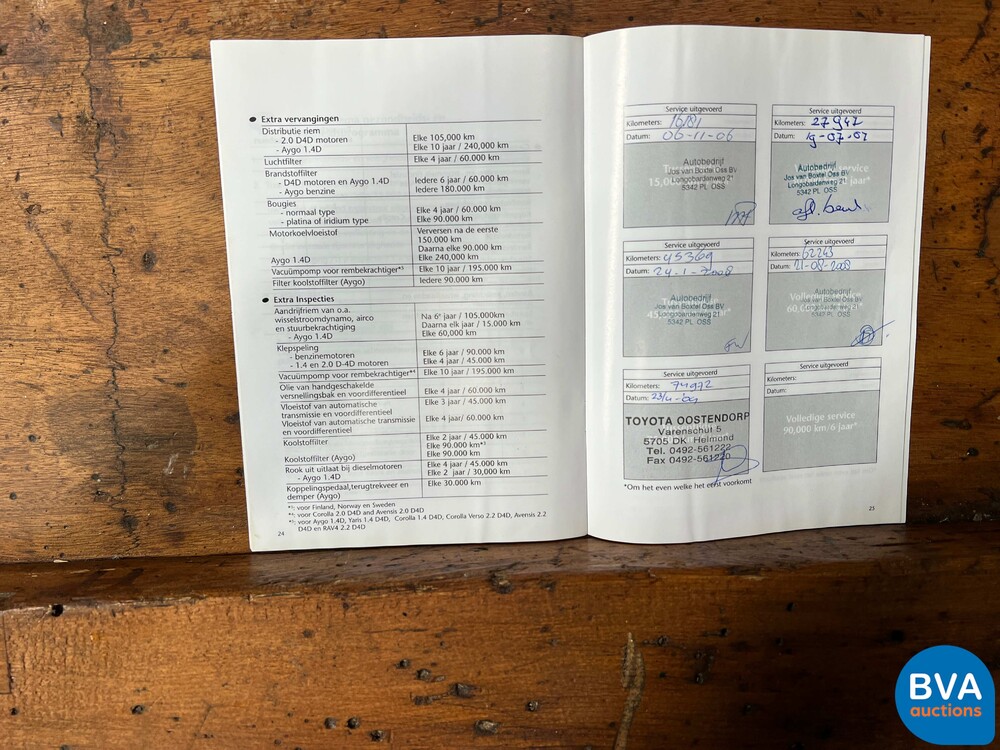 Extra vervangingen
Distributie riem
- 2.0 D4D motoren Elke 105,000 km
- Aygo 1.4D Elke 10 jaar / 240,000 km
Luchtfilter Elke 4 jaar / 60.000 km
Brandstoffilter
- D4D motoren en Aygo 1.4D Iedere 6 jaar / 60.000 km
- Aygo benzine Iedere 180.000 km
Bougies
- normaal type Elke 4 jaar / 60.000 km
- platina of iridium type Elke 90.000 km
Motorkoelvloeistof Verversen na de eerste
150.000 km
Daarna elke 90.000 km
Aygo 1.4D Elke 240,000 km
Vacuümpomp voor rembekrachtiger*³ Elke 10 jaar / 195.000 km
Filter koolstoffilter (Aygo) Iedere 90.000 km
Extra Inspecties
Aandrijfriem van o.a.
wisselstroomdynamo, airco Na 6ᵉ jaar / 105.000km
en stuurbekrachtiging Daarna elk jaar / 15.000 km
- Aygo 1.4D Elke 60,000 km
Klepspeling
- benzinemotoren Elke 6 jaar / 90.000 km
- 1.4 en 2.0 D-4D motoren Elke 4 jaar / 45.000 km
Vacuümpomp voor rembekrachtiger*⁴ Elke 10 jaar / 195.000 km
Olie van handgeschakelde
versnellingsbak en voordifferentieel Elke 4 jaar / 60.000 km
Vloeistof van automatische Elke 3 jaar / 45.000 km
transmissie en voordifferentieel
Vloeistof van automatische transmissie Elke 4 jaar/ 60.000 km
en voordifferentieel
Koolstoffilter Elke 2 jaar / 45.000 km
Elke 90.000 km*³
Koolstoffilter (Aygo) Elke 90.000 km
Rook uit uitlaat bij dieselmotoren Elke 4 jaar / 45.000 km
- Aygo 1.4D Elke 2 jaar / 30,000 km
Koppelingspedaal,terugtrekveer en Elke 30.000 km
demper (Aygo)
voor Finland, Norway en Sweden
voor Corolla 2.0 D4D and Avensis 2.0 D4D
voor Aygo 1.4D, Yaris 1.4 D4D, Corolla 1.4 D4D, Corolla Verso 2.2 D4D, Avensis 2.2
D4D en RAV4 2.2 D4D
24
Service uitgevoerd
Kilometers: 16181
Datum: 06-11-06
15,0
Autobedrijf
Jos van Boxtel Oss BV
Longobardenweg 21
5342 PL OSS
Service uitgevoerd
Kilometers: 27947
Datum: 19-07-07
service
jaar*
Autobedrijf
Jos van Boxtel Oss BV
Longobardenweg 21
5342 PL OSS
Service uitgevoerd
Kilometers: 45369
Datum: 24-1-2008
45
Autobedrijf
Jos van Boxtel Oss BV
Longobardenweg 21
5342 PL OSS
Service uitgevoerd
Kilometers: 62243
Datum: 21-08-2008
Volle
60.
Autobedrijf
Jos van Boxtel Oss BV
Longobardenweg 21
5342 PL OSS
Service uitgevoerd
Kilometers: 74972
Datum: 23/4-09
TOYOTA OOSTENDORP
Varenschut 5
5705 DK Helmond
Tel. 0492-561222
Fax 0492-561220
Service uitgevoerd
Kilometers:
Datum:
Volledige service
90,000 km/6 jaar*
*Om het even welke het eerst voorkomt
25
BVA
auctions